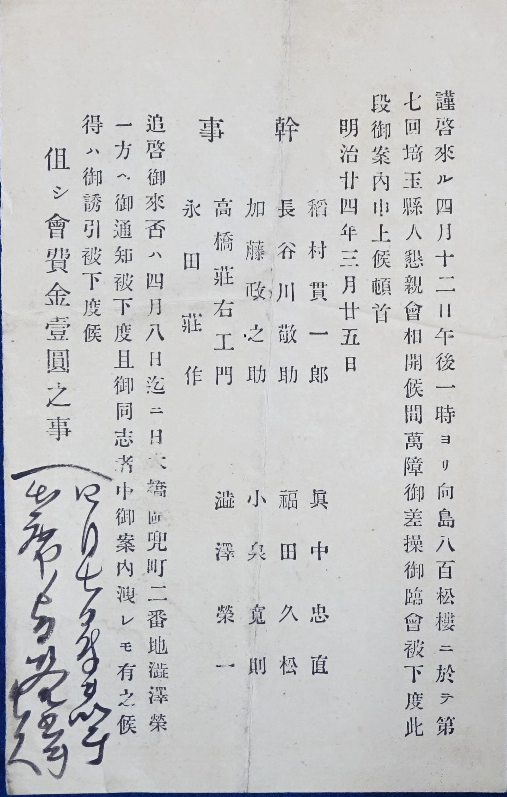 謹啓來ル四月十二日午後一時ヨリ向島八百松樓ニ於テ第
七回埼玉縣人懇親會相開候間萬障御差操御臨會被下度此
段御案內申上候頓首
明治廿四年三月廿五日
幹事
稻村貫一郎
眞中忠直
長谷川敬助
福田久松
加藤政之助
小泉寬則
高橋莊右工門
澁澤榮一
永田莊作
追啓御來否ハ四月八日迄ニ日本橋區兜町二番地澁澤榮
一方ヘ御通知被下度且御同志者中御案內洩レモ有之候
得ハ御誘引被下度候
但シ會費金壹圓之事